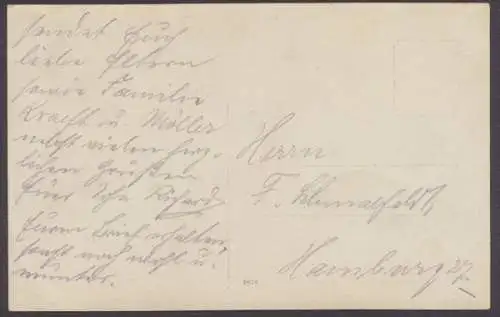 sendet Euch
liebe Eltern
sowie Familie
Kraeft u. Möller
nebst vielen herz-
lichen Grüßen
Euer Sohn Richard
Euern Brief erhalten
sonst noch wohl u.
munter.
Herrn
F. Schmalfeldt
Hamburg 27